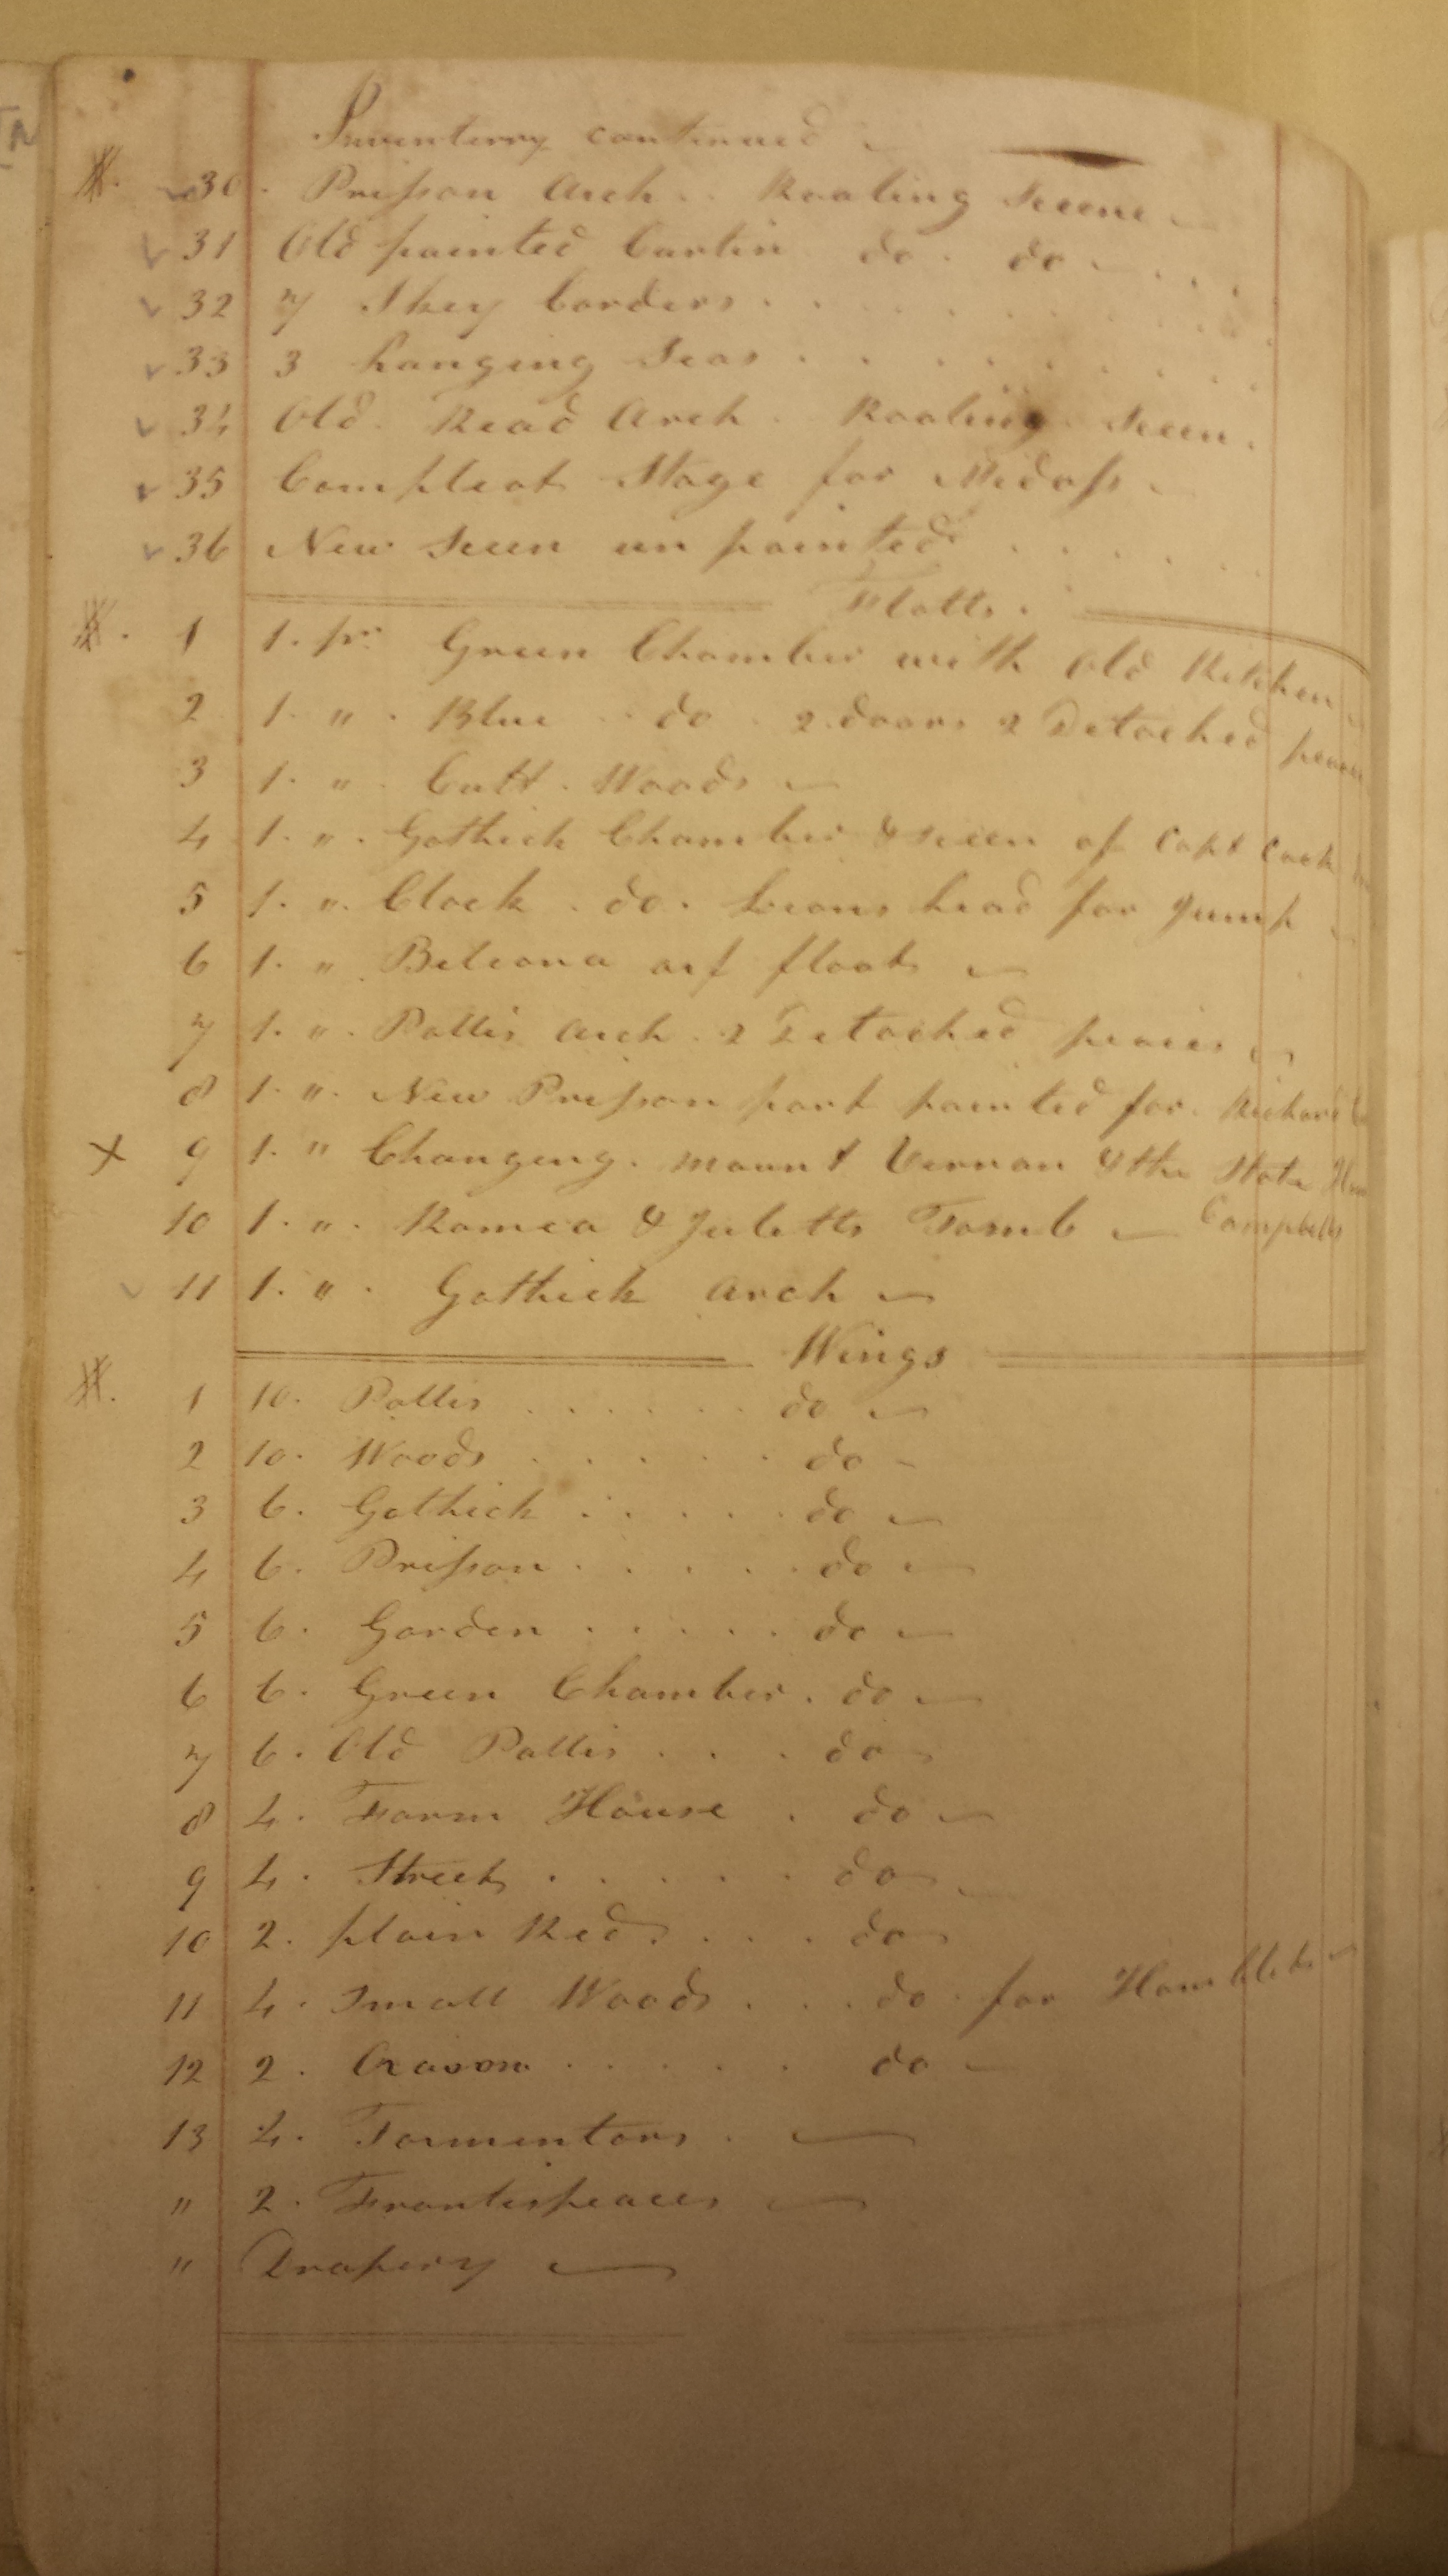 Inventerry continued
#. 30. Prisson Arch . . Roaling Sceene
31 Old painted Curtin do . do
32 7 Skey borders
33 3 hanging Seas
34 Old . Read Arch . Roaling Sceen.
35 Compleat Stage for Midass
36 New Sceen un painted
Flatts.
#. 1 1. pr. Green Chamber with Old Kitchen
2 1. " . Blue . do . 2 doors 2 Detached
3 1. " . Cutt . Woods
4 1. " . Gothick Chamber & sceen of Capt Cook
5 1. " . Clock . do . Lions head for Jump
6 1. " . float
7 1. " . Pallis Arch . 2 Detached peaces
8 1. " . New Prisson part painted for Richard
+ 9 1. " Changing . mount Vernon & the State
10 1. " . Romeo & Juletts Tomb Campbells
11 1. " . Gothick Arch
Wings
#. 1 10. Pallis do
2 10. Woods do
3 6. Gothick do
4 6. Prisson do
5 6. Garden do
6 6. Green Chamber . do
7 6. Old Pallis do
8 4. Farm House . do
9 4. Street do
10 2. plain Red do
11 4. Small Woods do . for Hambletts
12 2. do
13 4. Tormentors
" 2. Frontispeaces
" Drapery